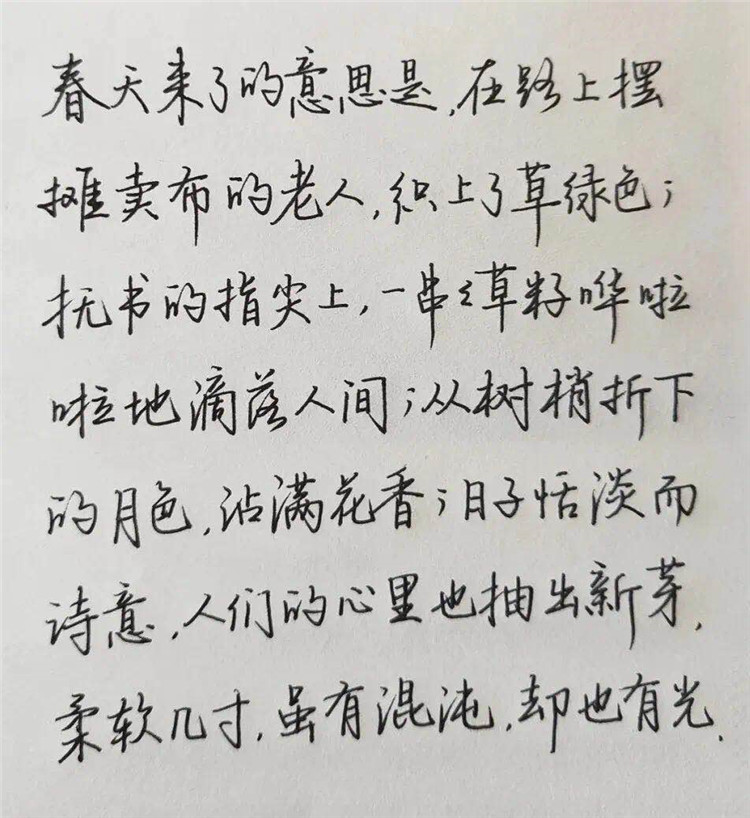 春天来了的意思是,在路上摆
摊卖布的老人,织上了草绿色;
抚书的指尖上,一串々草籽哗啦
啦地滴落人间;从树梢折下
的月色,沾满花香;日子恬淡而
诗意,人们的心里也抽出新芽,
柔软几寸,虽有混沌,却也有光.